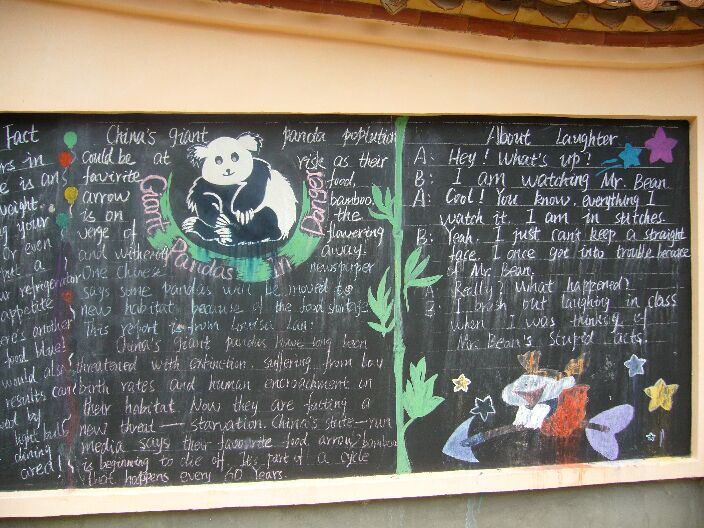 Fact
rs in
e is an
weight.
ng your
Or even
but a
ur refrigerator
appetite
ere's another
food blue!
would also
results can
ted by
light bulb
dining
area!
China's giant panda poplution
could be at risk as their
favorite food,
arrow bamboo,
is on the
verge of flowering
and withered away.
One Chinese newspurper
says some pandas will be moved to
new habitats because of the food shortage.
This report is from Louisa Lan:
China's giant pandas have long been
threatened with extinction, suffering from low
birth rates and human encroachment in
their habitat. Now they are facting a
new thread — starvation. China's state-run
media says their favourite food arrow bamboo
is beginning to die off. It's part of a cycle
that happens every 60 Years.
Giant Pandas in Danger
About Laughter
A: Hey! What's up?
B: I am watching Mr. Bean.
A: Cool! You know, everything I
watch it, I am in stitches.
B: Yeah. I just can't keep a straight
face. I once got into trouble because
of Mr. Bean.
A: Really? What happened?
B: I brash out laughing in class
when I was thinking of
Mr. Bean's stupid acts.